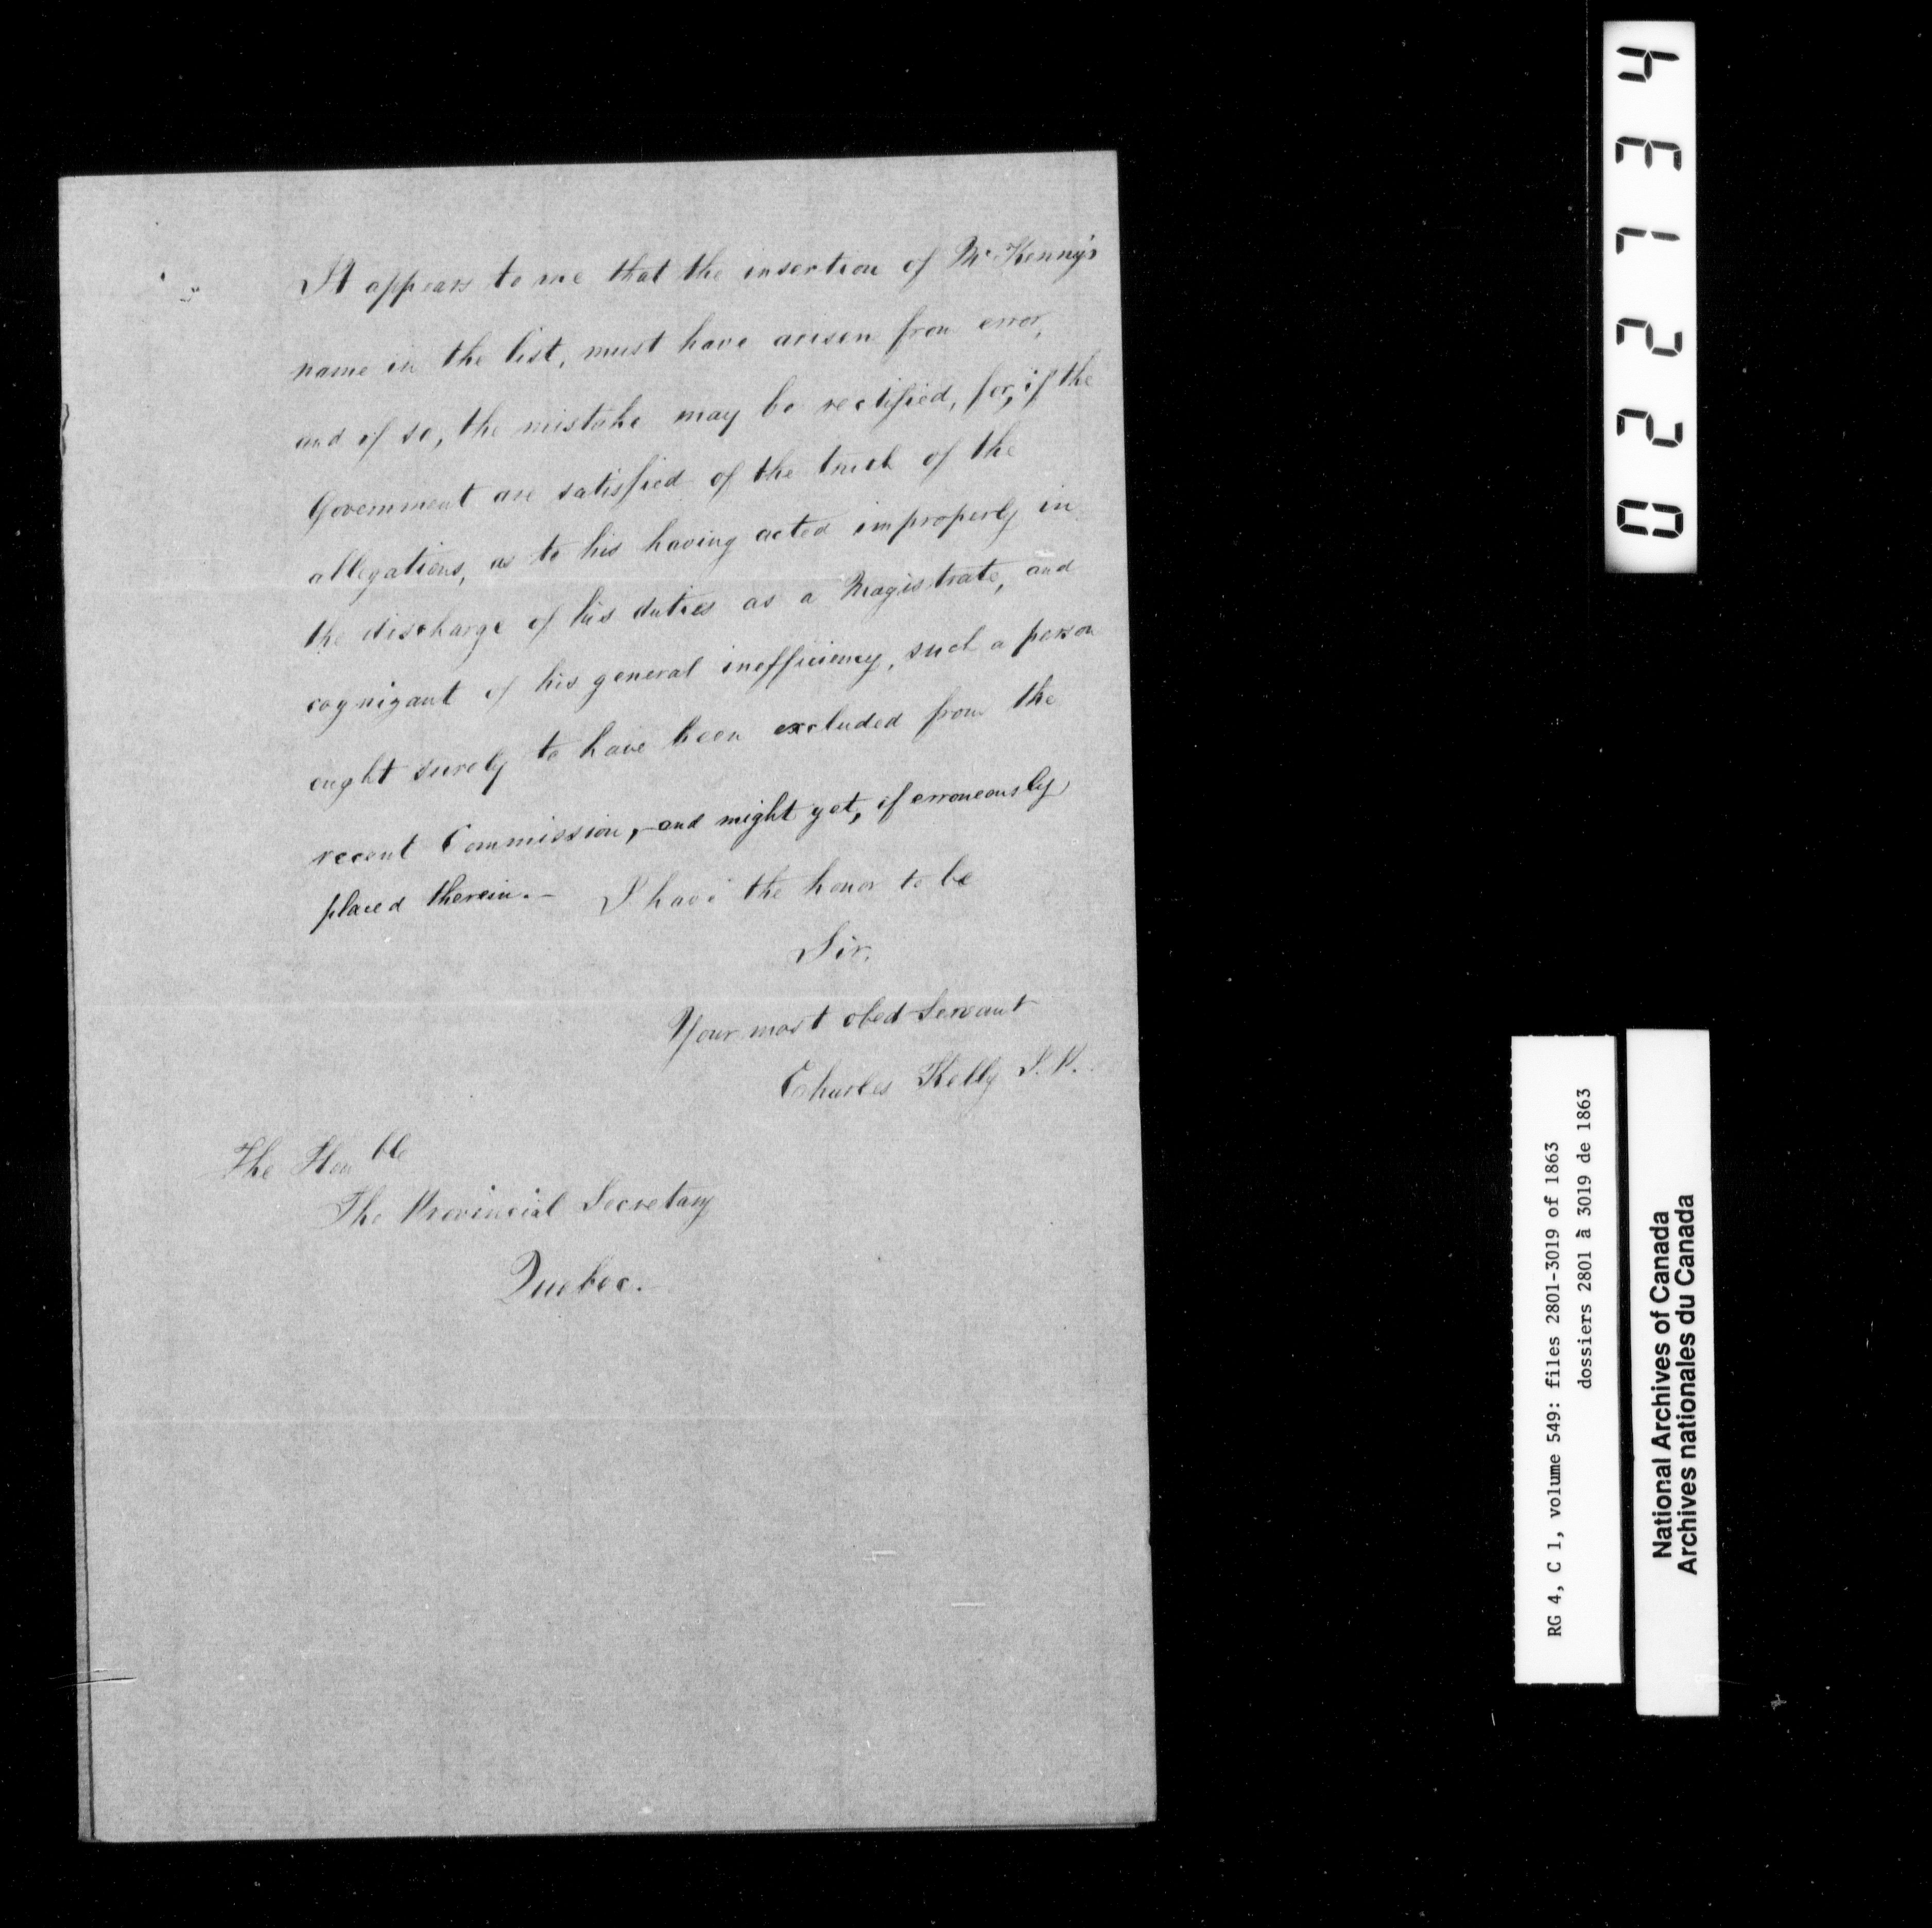 It appears to me that the insertion of Mr Kenny's
name in the list, must have arisen from error,
and if so, the mistake may be rectified, for, if the
Government are satisfied of the truth of the
allegations, as to his having acted improperly in
the discharge of his duties as a Magistrate, and
cognizant of his general inefficiency, such a person
ought surely to have been excluded from the
recent Commission, and might yet, if erroneously
placed therein. — I have the honor to be
Sir,
Your most obed Servant
Charles Kelly J.P.
The Honble
The Provincial Secretary
Quebec.
022734
RG 4, C 1, volume 549: files 2801-3019 of 1863
dossiers 2801 à 3019 de 1863
National Archives of Canada
Archives nationales du Canada